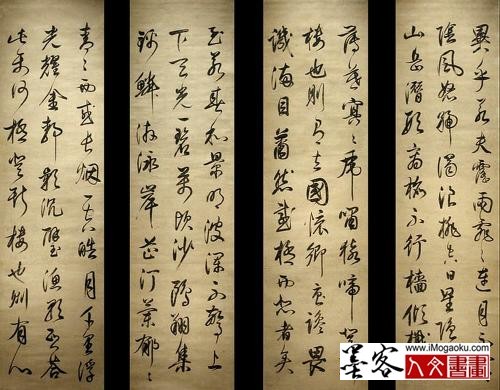 異乎若夫霪雨霏々連月不
陰風怒號濁浪排空日星隱
山岳潛形商旅不行檣傾楫
薄暮冥々虎嘯猿啼登
樓也則有去國懷鄉憂讒畏
譏滿目蕭然感極而悲者矣
至若春和景明波瀾不驚上
下天光一碧萬頃沙鷗翔集
錦鱗游泳岸芷汀蘭郁々
青々而或長烟一空皓月千里浮
光耀金靜影沉璧漁歌互答
此樂何極登斯樓也則有心
墨客
www.iMogaoku.com
人文書畫